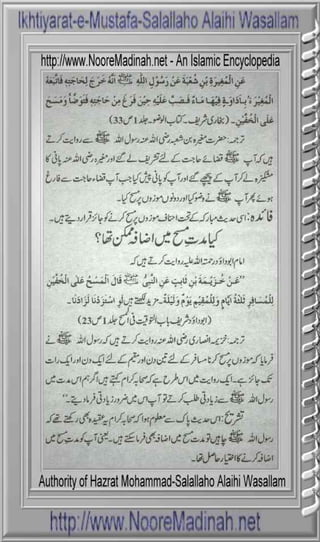 Ikhtiyarat-e-Mustafa-Salallaho Alaihi Wasallam
http://www.NooreMadinah.net - An Islamic Encyclopedia
عَنِ الْمُغِيرَةِ بْنِ شُعْبَةَ عَنْ رَسُولِ اللّٰهِ ﷺ أَنَّهُ خَرَجَ لِحَاجَتِهِ فَاتَّبَعَهُ
الْمُغِيرَةُ بِإِدَاوَةٍ فِيهَا مَاءٌ فَصَبَّ عَلَيْهِ حِينَ فَرَغَ مِنْ حَاجَتِهِ فَتَوَضَّأَ وَمَسَحَ
عَلَى الْخُفَّيْنِ۔ (بخاری شریف۔ کتاب الوضوء جلد ۱ ص 33)
ترجمہ: حضرت مغیرہ بن شعبہ رضی اللہ عنہ رسول اللہ ﷺ سے روایت کرتے
ہیں کہ آپ ﷺ قضائے حاجت کے لئے تشریف لے گئے اور مغیرہ رضی اللہ عنہ پانی کا
مشکیزہ لے کر آپ کے پیچھے گئے اور آپ کو پانی پیش کیا جب آپ قضاء حاجت سے فارغ
ہوئے پھر آپ ﷺ نے وضو کیا اور دونوں موزوں پر مسح کیا۔
فائدہ: اسی حدیث مبارکہ کے تحت احناف موزوں پر مسح کرنے کو جائز قرار دیتے ہیں۔
کیا مدتِ مسح میں اضافہ ممکن تھا؟
امام ابو داؤد رحمۃ اللہ علیہ روایت کرتے ہیں کہ
"عَنْ خُزَيْمَةَ بْنِ ثَابِتٍ عَنِ النَّبِيِّ ﷺ قَالَ الْمَسْحُ عَلَى الْخُفَّيْنِ
لِلْمُسَافِرِ ثَلٰثَةُ اَيَّامٍ وَلِلْمُقِيْمِ يَوْمٌ وَلَيْلَةٌ۔ مزید لکھتے ہیں لَوِ اسْتَزَدْنَاهُ لَزَادَنَا۔
(ابوداؤد شریف باب التوقیت فی المسح جلد ۱ ص 23)
ترجمہ: خزیمہ انصاری رضی اللہ عنہ روایت کرتے ہیں کہ رسول اللہ ﷺ نے
فرمایا کہ موزوں پر مسح کرنا مسافر کے لئے تین دن اور مقیم کے لئے ایک دن اور ایک رات
تک جائز ہے۔ ایک روایت میں اس طرح ہے کہ صحابہ کرام کہتے ہیں اگر ہم اس مدت میں
رسول اللہ ﷺ سے زیادتی طلب کرتے تو آپ اس میں ضرور زیادتی فرما دیتے۔"
تشریح: اس حدیث پاک سے معلوم ہوا کہ صحابہ کرام یہ عقیدہ بھی رکھتے تھے کہ
رسول اللہ ﷺ چاہیں تو مدت مسح میں اضافہ بھی فرما سکتے ہیں۔ یعنی آپ کو مدت مسح میں
اضافہ کرنے کا اختیار حاصل تھا۔
Authority of Hazrat Mohammad-Salallaho Alaihi Wasallam
http://www.NooreMadinah.net